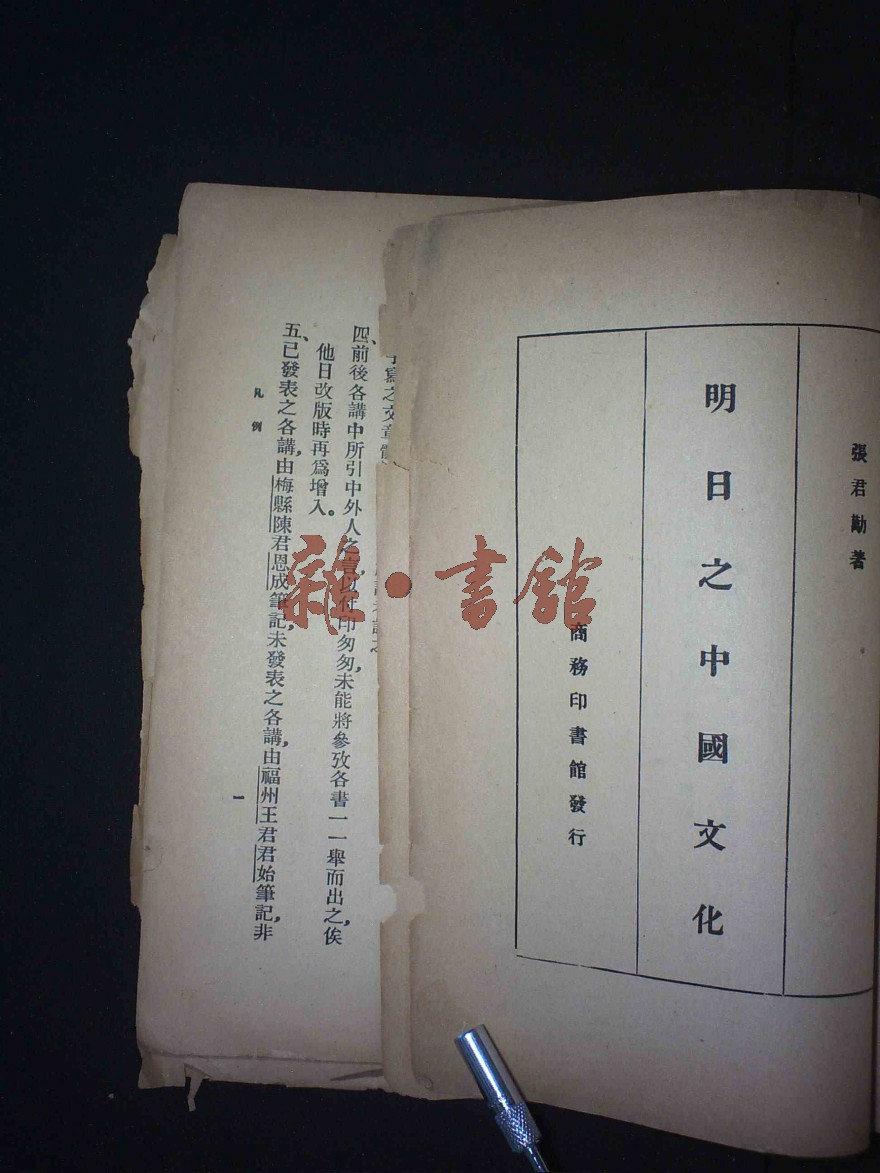 張君勱著
明日之中國文化
商務印書館發行
寫之文章
四、前後各講中所引中外人之言以付印匆匆，未能將參攷各書一一舉而出之，俟
他日改版時再爲增入。
五、已發表之各講，由梅縣陳君恩成筆記，未發表之各講，由福州王君君始筆記，非
凡例
一
雜·書館